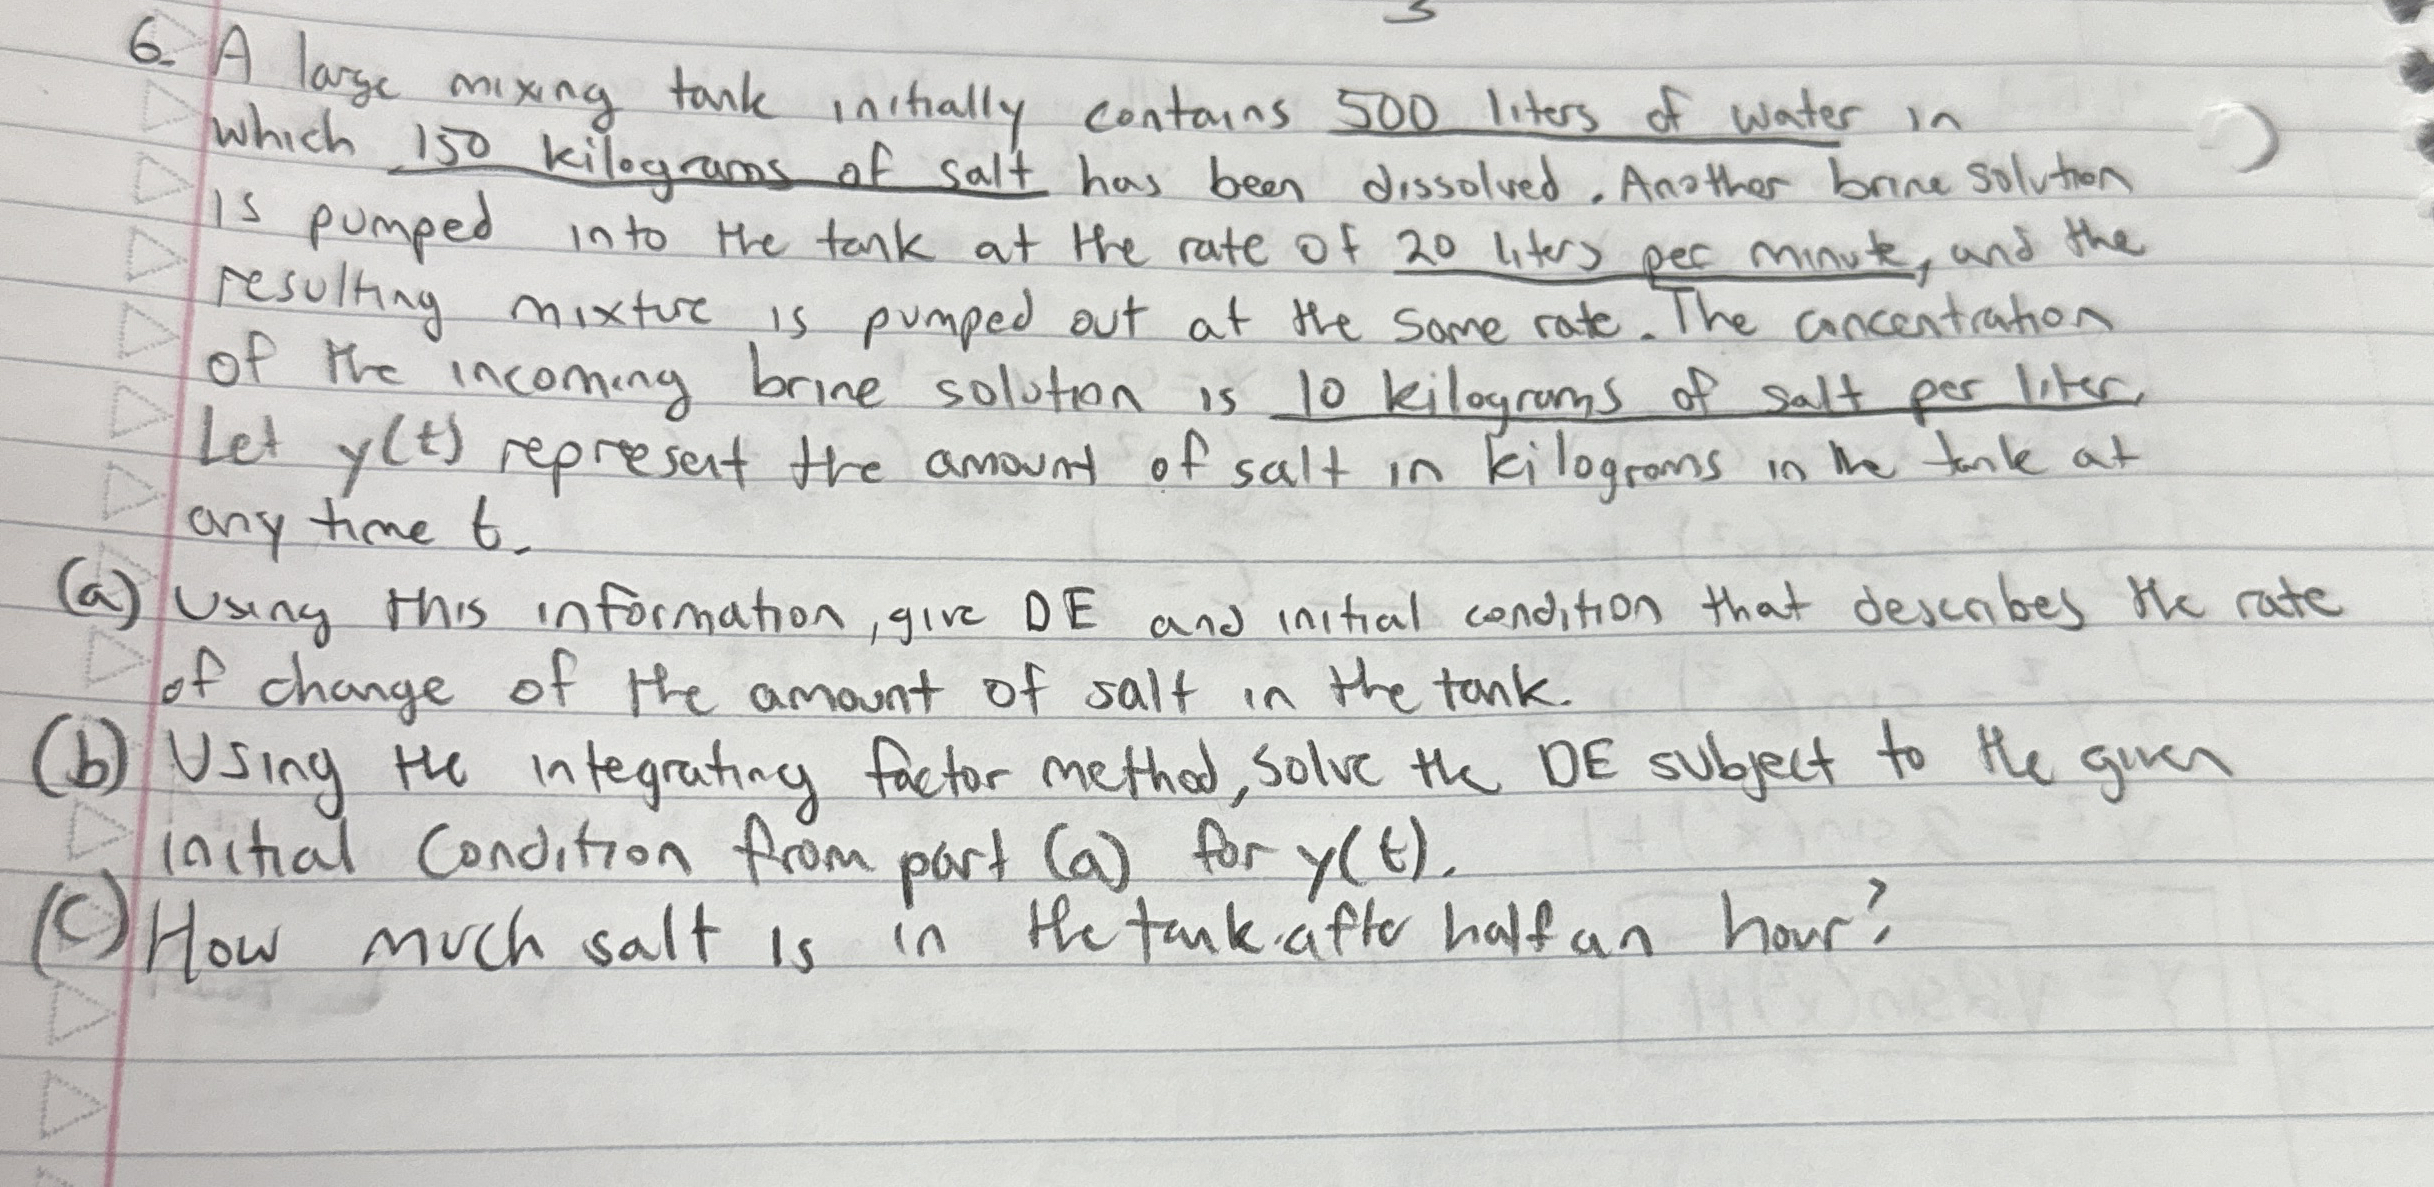 6. A large mixing tank initially contains 500 liters of water in
which 150 kilograms of salt has been dissolved. Another brine solution
is pumped into the tank at the rate of 20 liters per minute, and the
resulting mixture is pumped out at the same rate. The concentration
of the incoming brine solution is 10 kilograms of salt per liter.
Let y(t) represent the amount of salt in kilograms in the tank at
any time t.
(a) Using this information, give DE and initial condition that describes the rate
of change of the amount of salt in the tank.
(b) Using the integrating factor method, solve the DE subject to the given
initial condition from part (a) for y(t).
(c) How much salt is in the tank after half an hour?